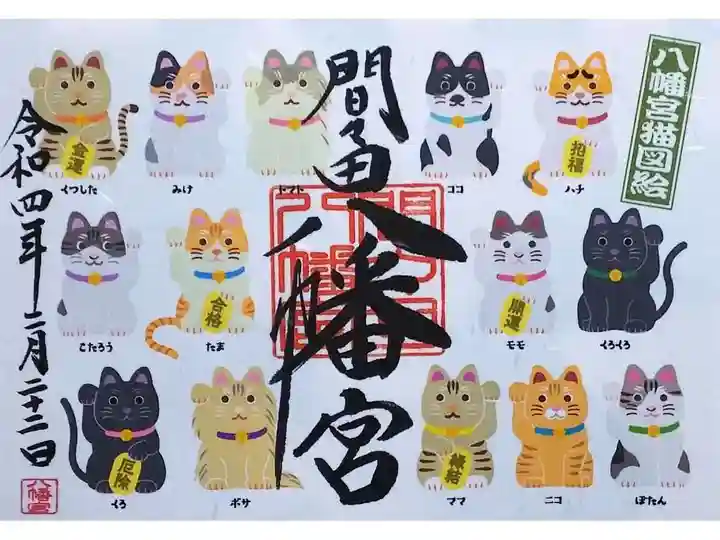 八幡宮猫図絵
間々田八幡宮
令和四年二月二十二日
金運
招福
くつした
みけ
トマト
ココ
ハチ
合格
開運
こたろう
たま
モモ
くろくろ
厄除
縁結
くろ
ボサ
ママ
ニコ
ぼたん
八幡宮